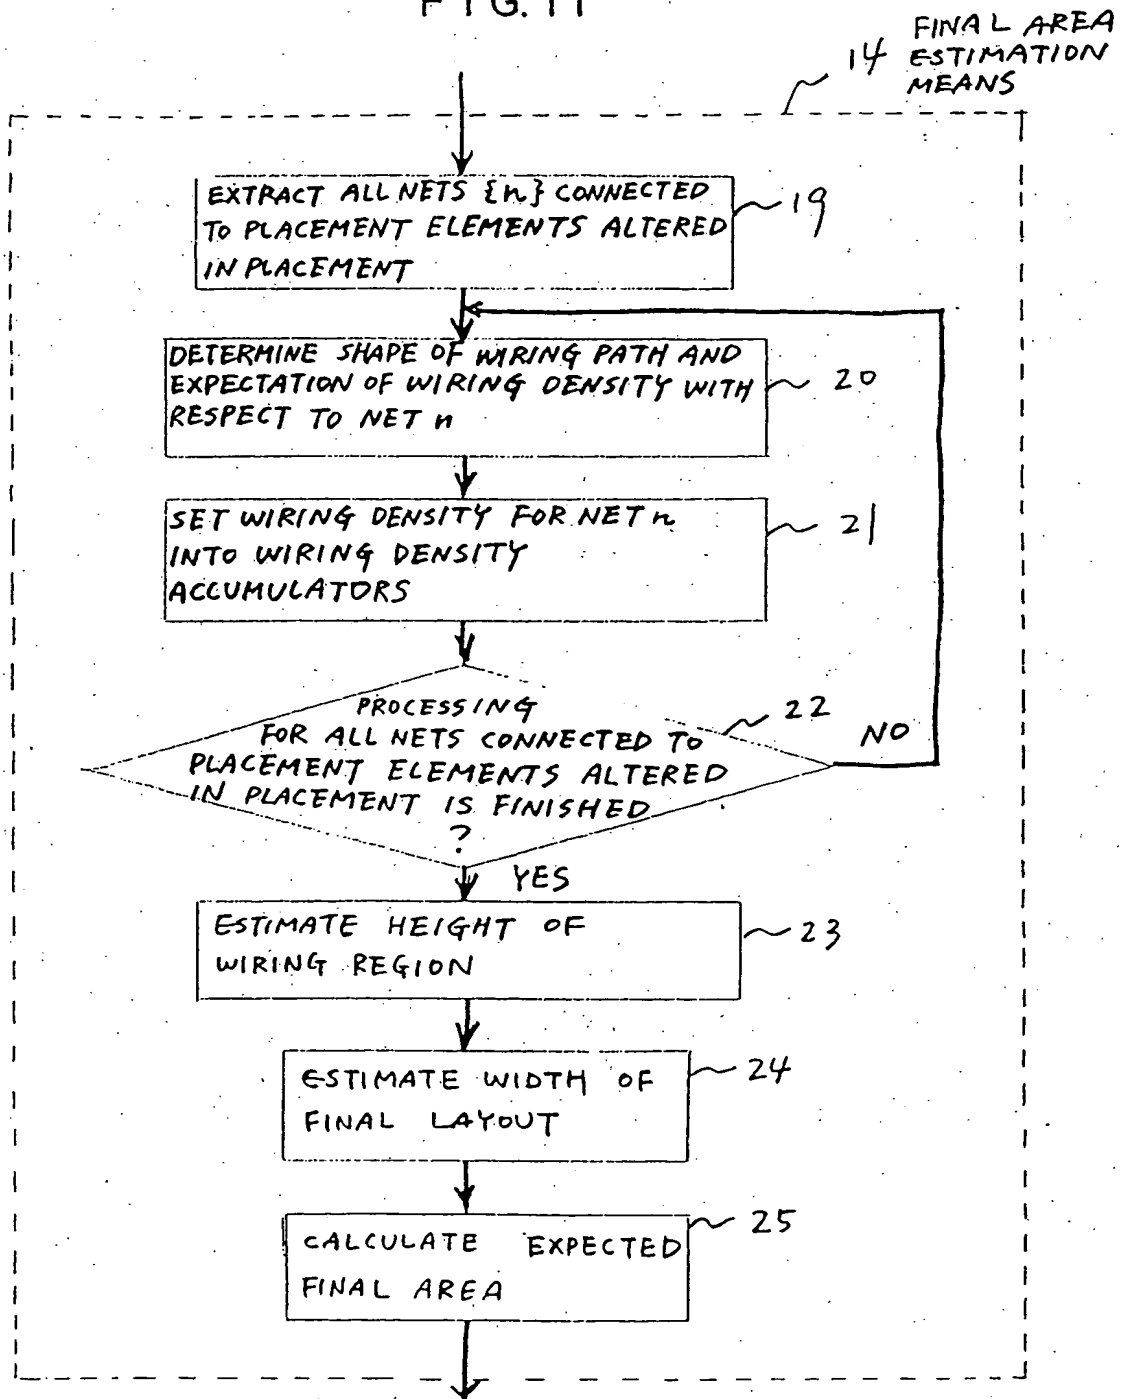 FIG. 11
14 FINAL AREA
ESTIMATION
MEANS
EXTRACT ALL NETS {n} CONNECTED
TO PLACEMENT ELEMENTS ALTERED
IN PLACEMENT
19
DETERMINE SHAPE OF WIRING PATH AND
EXPECTATION OF WIRING DENSITY WITH
RESPECT TO NET n
20
SET WIRING DENSITY FOR NET n
INTO WIRING DENSITY
ACCUMULATORS
21
PROCESSING
FOR ALL NETS CONNECTED TO
PLACEMENT ELEMENTS ALTERED
IN PLACEMENT IS FINISHED
?
22
NO
YES
ESTIMATE HEIGHT OF
WIRING REGION
23
ESTIMATE WIDTH OF
FINAL LAYOUT
24
CALCULATE EXPECTED
FINAL AREA
25